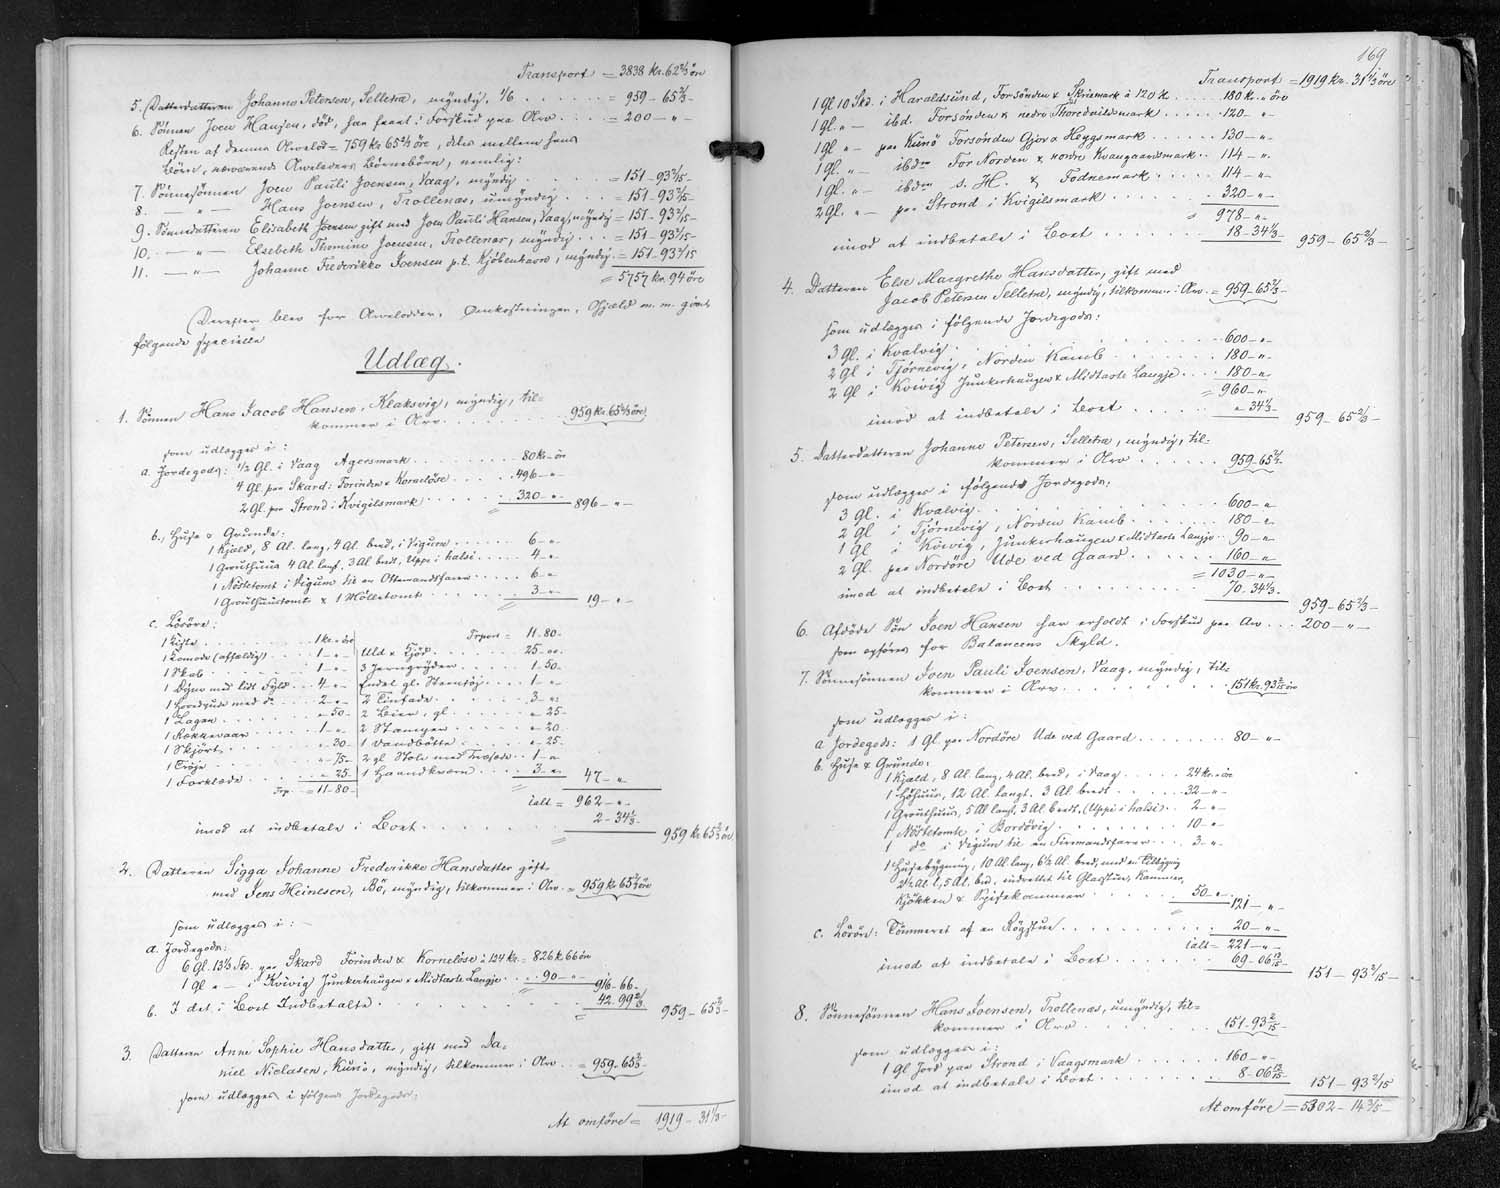 Transport = 3838 kr. 62 2/3 öre
5. Datterdatteren Johanne Petersen, Selletræ, myndig, 1/6 . . . . . = 959 - 65 2/3 -
6. Sönnen Joen Hansen, död, har faaet i Forskud paa Arv . . . = 200 - " -
Resten af denne Arvelod = 759 kr 65 2/3 öre, deles mellem hans
Börn, nærværende Arveladers Börnebörn, nemlig:
7. Sönnesönnen Joen Pauli Joensen, Vaag, myndig . . . . . = 151 - 93 2/15 -
8. — " — Hans Joensen, Trollenæs, umyndig . . . = 151 - 93 2/15 -
9. Sönnedatteren Elisabeth Joensen gift med Joen Pauli Hansen, Vaag, myndig = 151 - 93 2/15 -
10. — " — Elsebeth Thomine Joensen, Trollenæs, myndig . . . = 151 - 93 2/15 -
11. — " — Johanne Frederikke Joensen p.t. Kjöbenhavn, myndig = 151 - 93 2/15
= 5757 kr. 94 öre
Derefter blev for Arvelodder, Omkostninger, Gjæld m. m. gjort
følgende specielle
Udlæg.
1. Sönnen Hans Jacob Hansen, Klaksvig, myndig, til-
kommer i Arv . . . . . . . 959 kr. 65 2/3 öre
som udlægges i:
a. Jordegods: 1/2 Gl. i Vaag Agersmark . . . . . . . 80 kr - ör
4 Gl. paa Skard: Forinden & Kornelöse . . . . 496 - " -
2 Gl. paa Strond i Kvigilsmark . . . . . . 320 - " - = 896 - " -
b. Huse & Grunde:
1 Hjald, 8 Al. lang, 4 Al. bred, i Vigum . . . . 6 - " -
1 Grouthuus 4 Al. langt, 3 Al. bredt, Uppi i halsi . . . . 4 - " -
1 Nöstetomt i Vigum til en Ottemandsfarer . . . . . 6 - " -
1 Grouthuustomt & 1 Mölletomt . . . . . . . 3 - " - = 19 - " -
c. Lösöre:
1 Kiste . . . . . . . . 1 kr. - öre Trport = 11 - 80 -
1 Komode (affældig) . . . . 1 - " - Uld & Kjöd . . . . . . 25 - 00 -
1 Skab . . . . . . . . 1 - " - 3 Jerngryder . . . . . 1 - 50 -
1 Dyne med lidt Fyld . . 4 - " - Endel gl. Steentöj . . . . 1 - " -
1 Hovedpude med do . . 2 - " - 2 Tinfade . . . . . . 3 - " -
1 Lagen . . . . . . . " - 50 - 2 Leier, gl . . . . . . " - 25 -
1 Rækkevaar . . . . . . 1 - " - 2 Stamper . . . . . . " - 20 -
1 Skjört . . . . . . . " - 30 - 1 Vandbötte . . . . . . " - 25 -
1 Tröje . . . . . . . " - 75 - 2 gl Stole med Træsæde . . 1 - " -
1 Forklæde . . . . . . " - 25 1 Haandkvern . . . . . 3 - " - 47 - " -
Trp. = 11 - 80 - ialt = 962 - " -
imod at indbetale i Boet . . . . . . . . 2 - 34 1/3 - 959 kr 65 2/3 öre
2. Datteren Sigga Johanne Frederikke Hansdatter gift
med Jens Heinesen, Bö, myndig, tilkommer i Arv . = 959 kr 65 2/3 öre
som udlægges i: -
a. Jordegods:
6 Gl. 13 1/3 Sk. paa Skard Forinden & Kornelöse à 124 kr. = 826 k 66 ör
1 Gl " - i Kvivig Junkerhaugen & Midtaste Langje . . 90 - " - 916 - 66 -
b. I det i Boet Indbetalte . . . . . . . . . . . 42 - 99 2/3 959 - 65 2/3 -
3. Datteren Anne Sophie Hansdatter, gift med Da-
niel Niclasen, Kunö, myndig, tilkommer i Arv . . = 959 - 65 2/3 -
som udlægges i følgende Jordegods:
At omföre = 1919 - 31 1/3 -
169
Transport = 1919 kr. 31 1/3 öre
1 Gl 10 Skd. i Haraldsund, Forsönden & Skriemark à 120 k . . . . . 180 kr. " öre
1 Gl. " - ibd. Forsönden & nedre Thoredvildsmark . . . . 120 - " -
1 Gl " - paa Kunö Forsönden Gjov & Heygsmark . . . . . 130 - " -
1 Gl. " - ibdm For Norden & nordre Kvangaardsmark . . 114 - " -
1 Gl. " - ibdm s. H. & Todnemark . . . . . 114 - " -
2 Gl. " - paa Strond i Kvigilsmark . . . . . . . 320 - " -
= 978 - " -
imod at indbetale i Boet . . . . . . . 18 - 34 1/3 959 - 65 2/3 -
4. Datteren Else Margrethe Hansdatter, gift med
Jacob Petersen Selletræ, myndig, tilkommer i Arv . = 959 - 65 2/3 -
som udlægges i følgende Jordegods:
3 Gl. i Kvalvig . . . . . . . . . . 600 - " -
2 Gl i Tjörnevig, Norden Kamb . . . . . . 180 - " -
2 Gl i Kvivig Junkerhaugen & Midtaste Langje . . . 180 - " -
= 960 - " -
imod at indbetale i Boet . . . . . . " 34 1/3 - 959 - 65 2/3 -
5. Datterdatteren Johanne Petersen, Selletræ, myndig, til-
kommer i Arv . . . . . . 959 - 65 2/3 -
som udlægges i følgende Jordegods:
3 Gl. i Kvalvig . . . . . . . . . . 600 - " -
2 Gl i Tjörnevig, Norden Kamb . . . . . . 180 - " -
1 Gl i Kvivig, Junkerhaugen & Midtaste Langje . . 90 - " -
2 Gl. paa Nordöre Ude ved Gaard . . . . . . 160 - " -
= 1030 - " -
imod at indbetale i Boet . . . . . . . . . . 70 - 34 1/3 - 959 - 65 2/3 -
6. Afdöde Sön Joen Hansen har erholdt i Forskud paa Arv . . . 200 - " -
som opföres for Balancens Skyld.
7. Sönnesönnen Joen Pauli Joensen, Vaag, myndig, til-
kommer i Arv . . . . . . . . . . 151 kr. 93 2/15 öre
som udlægges i:
a Jordegods: 1 Gl. paa Nordöre Ude ved Gaard . . . . . . 80 - " -
b. Huse & Grunde:
1 Hjald, 8 Al. lang, 4 Al. bred, i Vaag . . . . . 24 kr. - ör
1 Höhuus, 12 Al. langt, 3 Al. bredt . . . . . 32 - " -
1 Grouthuus, 5 Al langt, 3 Al. bredt, (Uppi i halsi) . . 2 - " -
1 Nöstetomte i Bordövig . . . . . . . . 10 - " -
1 do i Vigum til en Firmandsfarer . . . 3 - " -
1 Husebygning, 10 Al lang, 6 1/2 Al. bred, med en Tilbygning
2 1/2 Al l., 5 Al. bred, indrettet til Glasstue, Kammer,
Kjökken & Spisekammer . . . . . . . 50 - " - = 121 - " -
c. Lösöre: Tömmeret af en Rögstue . . . . . . . . . . 20 - " -
ialt = 221 - " -
imod at indbetale i Boet . . . . . . . 69 - 06 13/15 151 - 93 2/15 -
8. Sönnesönnen Hans Joensen, Trollenæs, umyndig, til-
kommer i Arv . . . . . . . . 151 - 93 2/15
som udlægges i:
1 Gl Jord paa Strond i Vaagsmark . . . . . . 160 - " -
imod at indbetale i Boet . . . . . . . . 8 - 06 13/15 151 - 93 2/15
At omföre = 5302 - 14 3/5 -